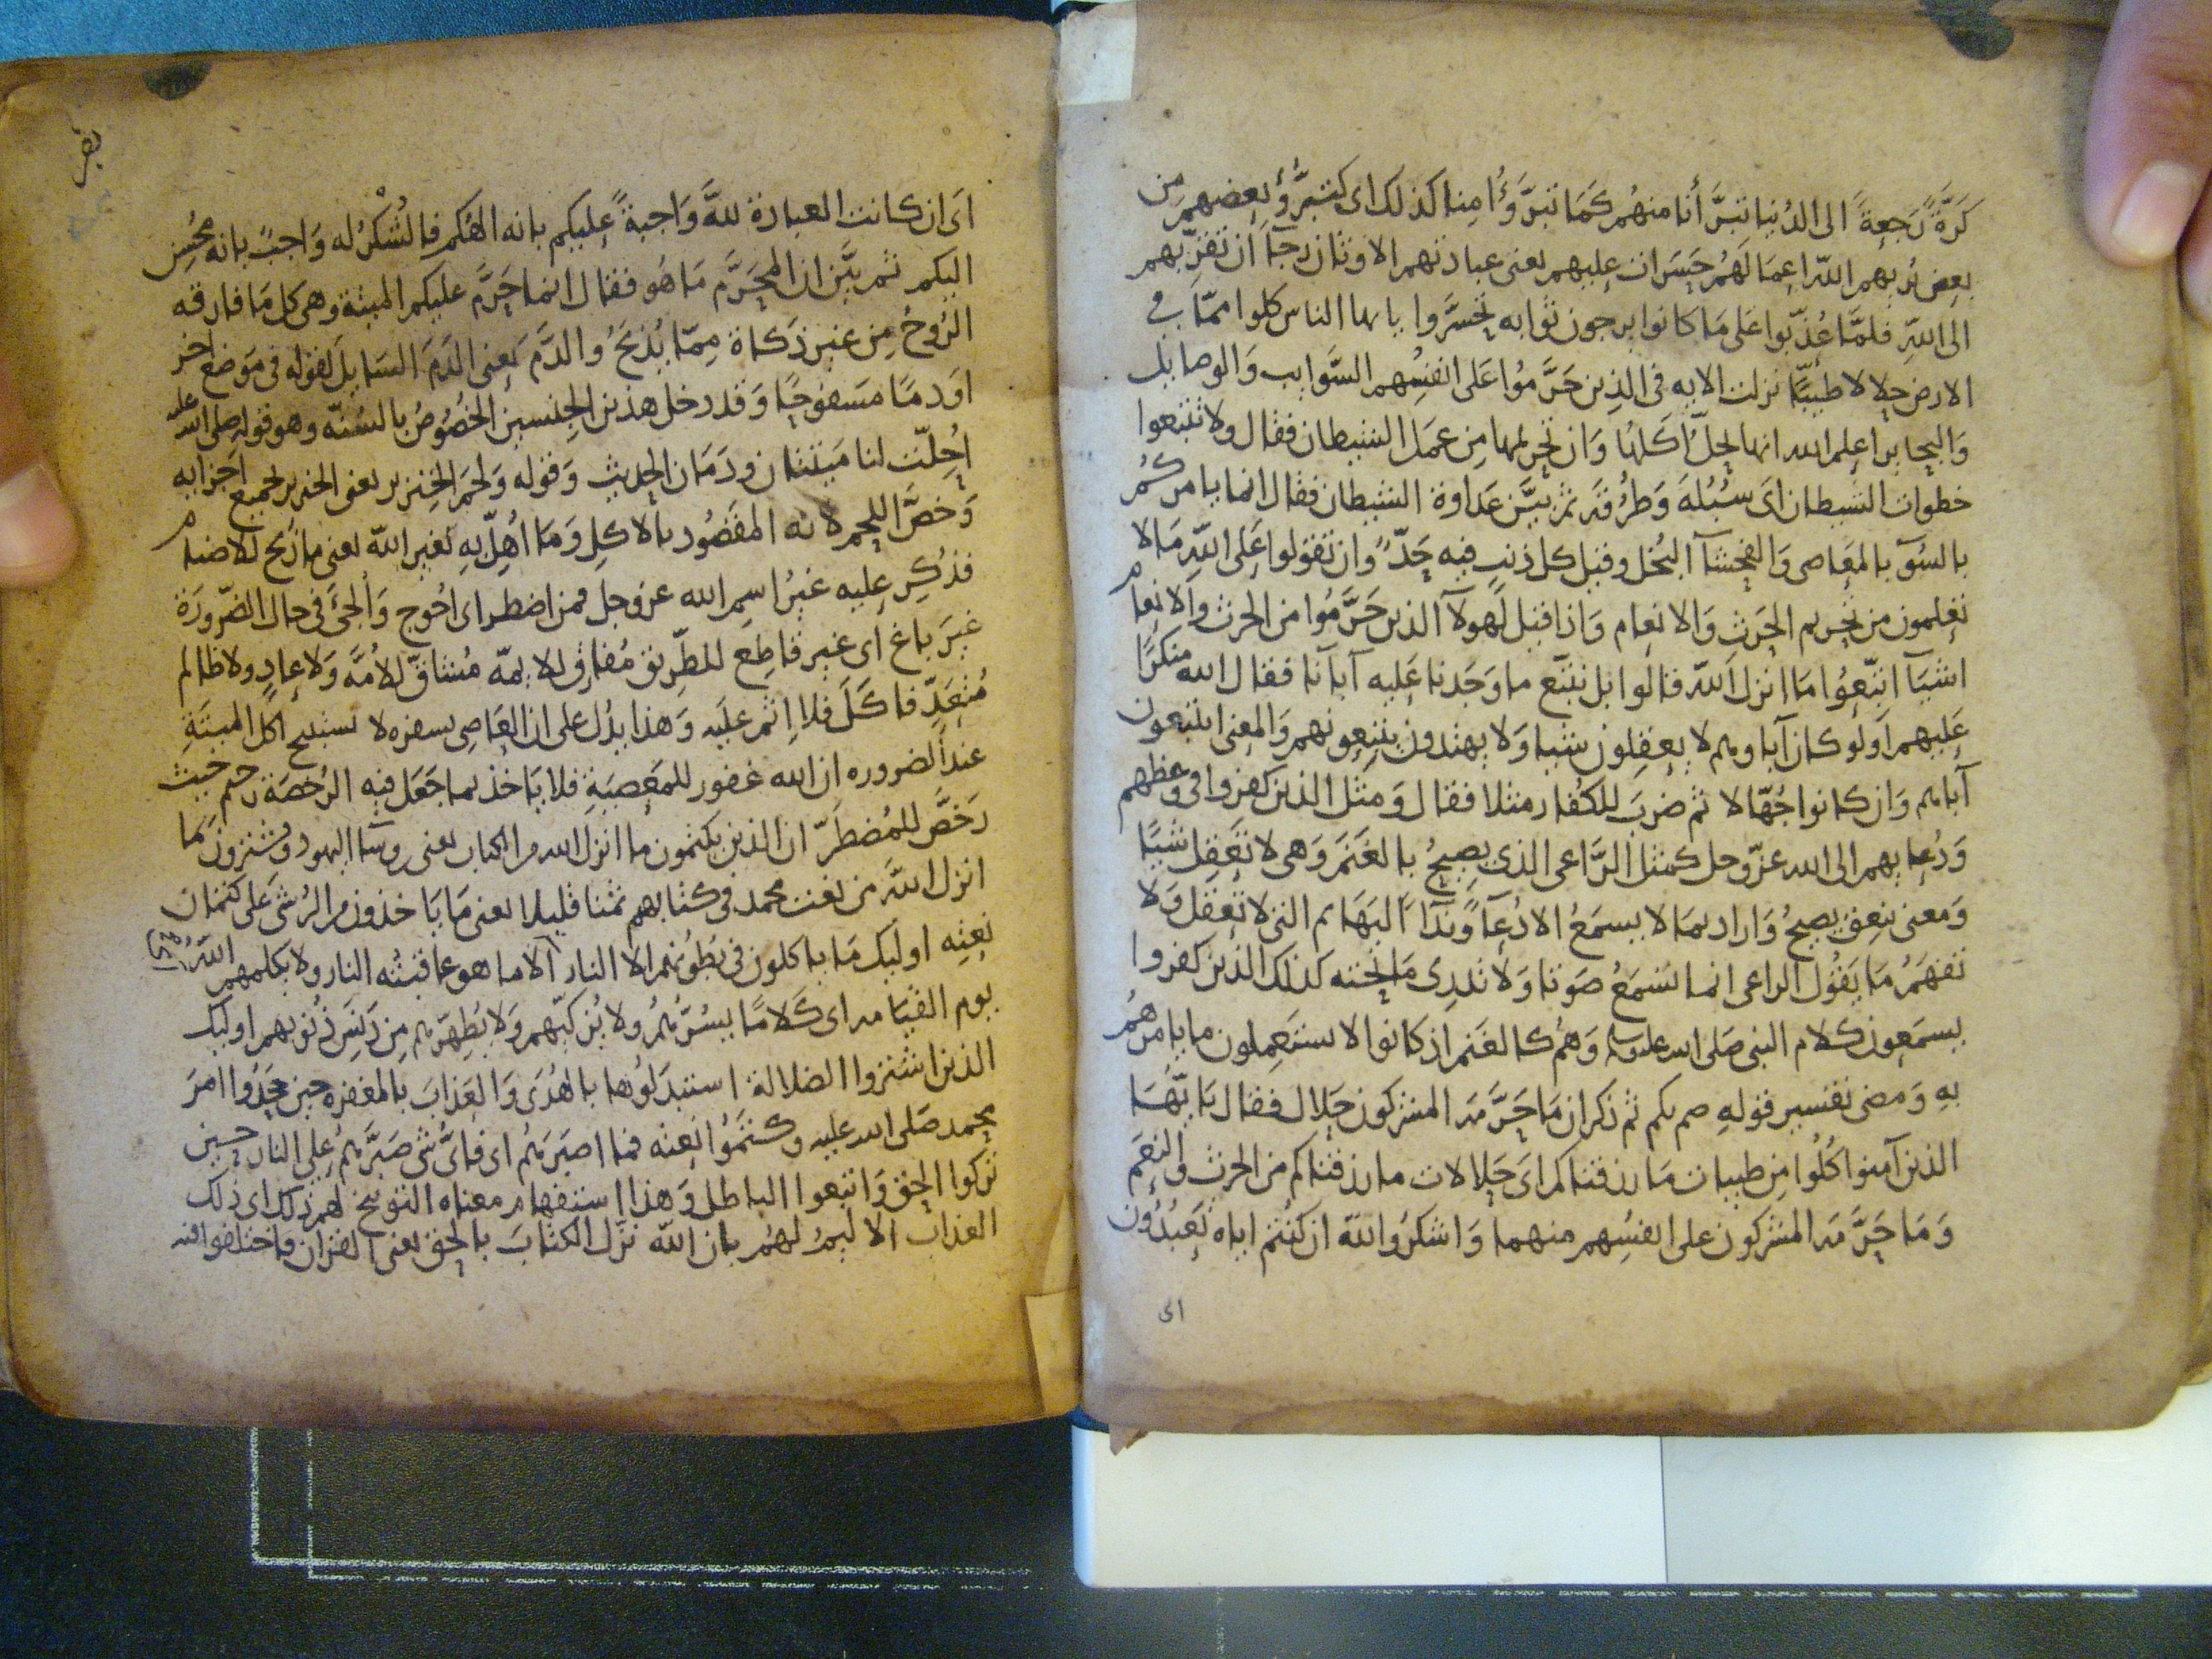 كَرَّةً رَجعةً الى الدُنيا نتبرَّأ انا منهُم كَمَا تبرَّؤُا مِنا كذلك اى كتبرّؤ بعضهم من
بعض يُريهم اللّه اعمَالَهُم حَسَرات عليهم يعنى عبادتهم الاوثان رجآ ان تقرّبهم
الى اللّهِ فلمَّا عُذّبوا على مَا كانوا يرجون ثوابه تحسَّروا يا ايها الناس كلوا ممّا فى
الارض حلالا طيّبًا نزلت الايه فى الذِين حَرَّمُوا عَلى انفسُهم السَّوايب وَالوصايل
وَالبحاير اعلم الله انها يحلّ اَكلهَا وَان تحريمها مِن عمَل الشيطان فقال ولا تتبعوا
خطوات الشيطان اىَ سُبُلَهَ وَطرُقَه ثم بيَّن عَداوة الشيطان فقال انما يامركُم
بالسُوٓ بالمعَاصى وَالفحشآ البُخل وقيل كل ذنبٍ فيه حَدٌّ وان تقولوا عَلى اللّهِ مَا لا
تعلمون من تحريم الحَرث وَالانعام وَاذا قيل لهولآ الذين حَرَّمُوا من الحرث والانعام
اشيآ اتّبعُوا مَا انزل اللّه قالوا بل نتبع ما وَجَدنا عَليه آبآنا فقال الله منكرًا
عَليهم اَولو كان آباوهم لا يعقلون شيا وَلا يهتدون يتبعونهم وَالمعنى ايتبعون
آباهم وَان كانوا جُهّالا ثم ضربَ للكُفار مثلا فقال وَمثل الذين كفروا فى وعظهم
وَدُعايهم الى الله عزّ وجل كمثل الرَّاعى الذى يصِيحُ بالغَنَم وَهى لا تَعقِل شيًا
وَمعنى ينعق يصيحُ وَاراد بمَا لا يسمَعُ الا دُعآً وندَآ البَهَايم التى لا تَعقل وَلا
تفهَمُ مَا يَقُول الراعى انما تسْمَعُ صَوتا وَلا تدرِى مَا تحته كذلك الذين كفروا
يسمَعون كلام النبى صَلى الله عليه وسلم وَهُم كالغَنم اذ كَانوا لا يستَعملون ما يامرهُم
بهِ وَمضى تفسير قولهِ صم بكم ثم ذكر ان مَا حَرَّمَه المشركون حَلال فقال يَا ايُّها
الذين آمنوا كُلُوا مِن طيبات مَا رزقناكم اىَ حَلالات ما رزقناكم من الحرث وَالنعَم
وَمَا حَرَّمَه المشركون على انفسُهم منهما وَاشكرُوا للّهَ ان كنُتم اياه تَعبُدُون
اى
بقر
اىَ ان كانت العبادة للّهَ وَاجبةً عليكم بانه الهُكم فالشُكرُ له وَاجبٌ بانه محُسِن
اليكم ثم بيَّن ان المحَرَّم مَا هُو فقال انما حَرَّم عليكم الميتة وهى كل مَا فارقه
الرُوحُ مِن غير ذَكاة مِمّا يُذبَحُ والدَّم يعنى الدَم السَايل لقوله فى مَوضع اخر
اوَدمًا مسَفوحًا وَقد دخل هذين الجنسين الخصُوصُ بالسُنّه وهو قوله صلى الله عليه
اُحلّت لنا ميتتان ودَمَان الحديث وَقوله وَلحمَ الخِنزير يعنى الخنزير لجميع اجزايه
وَخصَّ اللحم لانه المقصُود بالاكل وَمَا اُهِلَّ بهِ لغير اللّه يعنى ما ذبح للاصنام
فذُكِر عليه غيرُ اسم الله عز وجل فمن اضطر اى احُوج وَالجئ فى حال الضّرورَة
غيرَ باغ اى غير قاطِع للطّريق مُفارق للايمّه مُشاقّ للامُه وَلا عادٍ ولا ظالم
مُتعَدِّ فاكَلَ فلا اِثم عليه وَهذا يدُل على ان العَاصِى بسفره لا يستبيح اكل الميتَةِ
عند الضروره ان الله غفور للمَعصيَةِ فلا يَاخذ بما جَعَل فيه الرُخصَة رحيم حيث
رَخصَّ للمُضطَرّ ان الذين يكتمون ما انزل الله من الكتاب يعنى روسآ اليهود ويشترون بما
انزل اللّهَ من نعت محمد فى كتابهم ثمنا قليلا يعنى مَا يَاخذون من الرُشى عَلى كتمان
نعتِه اوليك مَا ياكلون فى بطُونهم الا النار الا ما هو عاقبتُه النار ولا يكلمهم اللّهَ
يوم القيامه اى كَلامًا يسُرّهمُ ولا يُزكيّهم وَلا يُطهِّرهم مِن دَنَسِ ذُنوبهم اوليك
الذين اشتروا الضلالة استبدَلوُها بالهُدَى وَالعَذابَ بالمغفره حين جحَدُوا امرَ
محمد صَلى الله عليه وكتَمُوا نعته فما اصبَرهم اى فاىُّ شئ صَبَّرهُم على النار حين
تركوا الحقّ وَاتبعوا الباطل وَهذا استفهام معناه التوبيخ لهم ذلك اى ذلك
العذاب الاليمُ لهُم بان اللّه نزّل الكتابَ بالحق يعنى القران فاختلفوا فيه